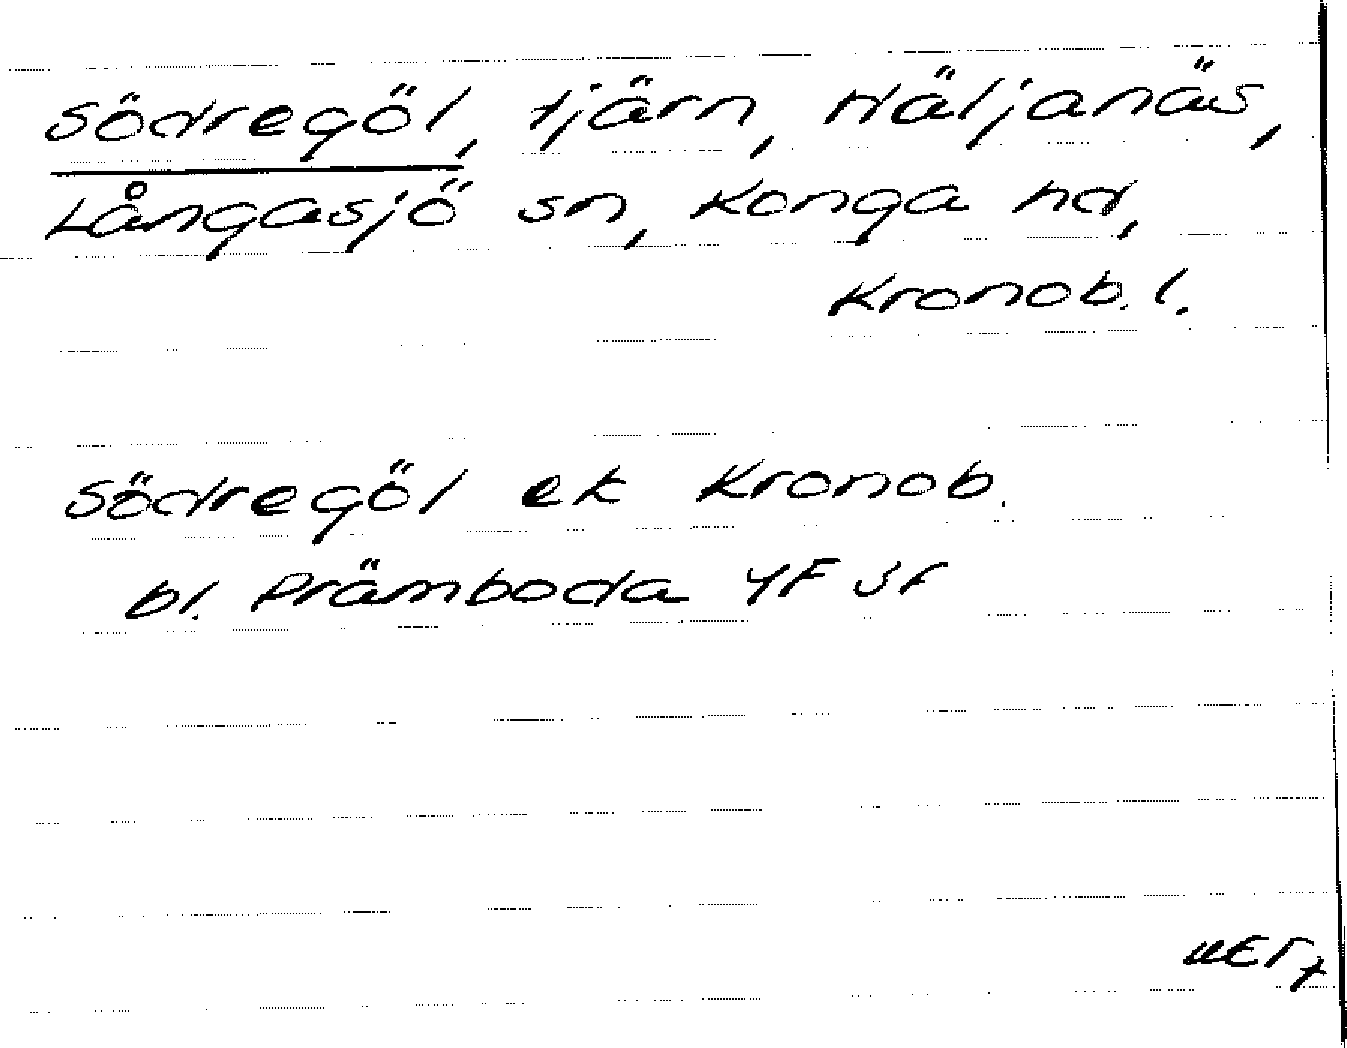 Södregöl, tjärn, Häljanäs,
Långasjö sn, Konga hd,
Kronob. l.
Södregöl ek Kronob.
bl. Prämboda 4F